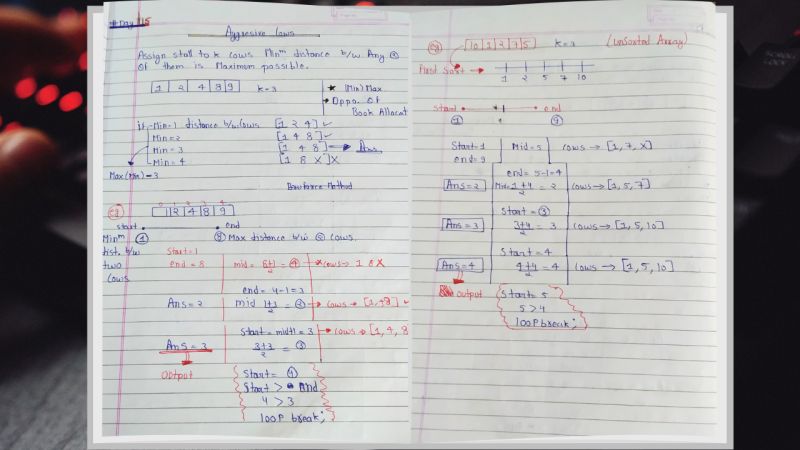 #Day 115
Aggresive Cows
Assign stall to k Cows Minᵐ distance b/w Any ②
Of them is Maximum possible.
1 | 2 | 4 | 8 | 9 K=3
★ (Min) Max
→ Oppo. Of
Book Allocat
if → Min=1 distance b/w Cows [1 2 4] ✓
Min=2 [1 4 8] ✓
Min=3 [1 4 8] Ans
Min=4 [1 8 X] X
Max(Min)=3
Bowforce Method
eg
0 1 2 3 4
1|2|4|8|9
start end
Minᵐ ① ⑧ Max distance b/w ② Cows.
dist. b/w
two
Cows
Start=1
end=8 mid = 8+1/2 = ④ → Cows→ 1 8 X
end = 4-1=3
Ans=2 mid 1+3/2 = ② → Cows → [1,4,8] ✓
Start=mid+1=3 → Cows → [1,4,8
Ans=3 3+3/2 = ③
Output
Start= ④
Start > end
4 > 3
loop break;
eg [10|1|2|7|5] K=3 (Unsorted Array)
First Sort →
1 2 5 7 10
start end
① ⑨
Start=1 Mid=5 Cows → [1,7,X]
end=9
end=5-1=4
Ans=2 Mid=1+4/2 = 2 Cows→ [1,5,7]
Start=③
Ans=3 3+4/2 = 3 Cows → [1,5,10]
Start=4
Ans=4 4+4/2 = 4 Cows → [1,5,10]
Output
Start=5
5>4
loop break;
SCROLL
LOCK